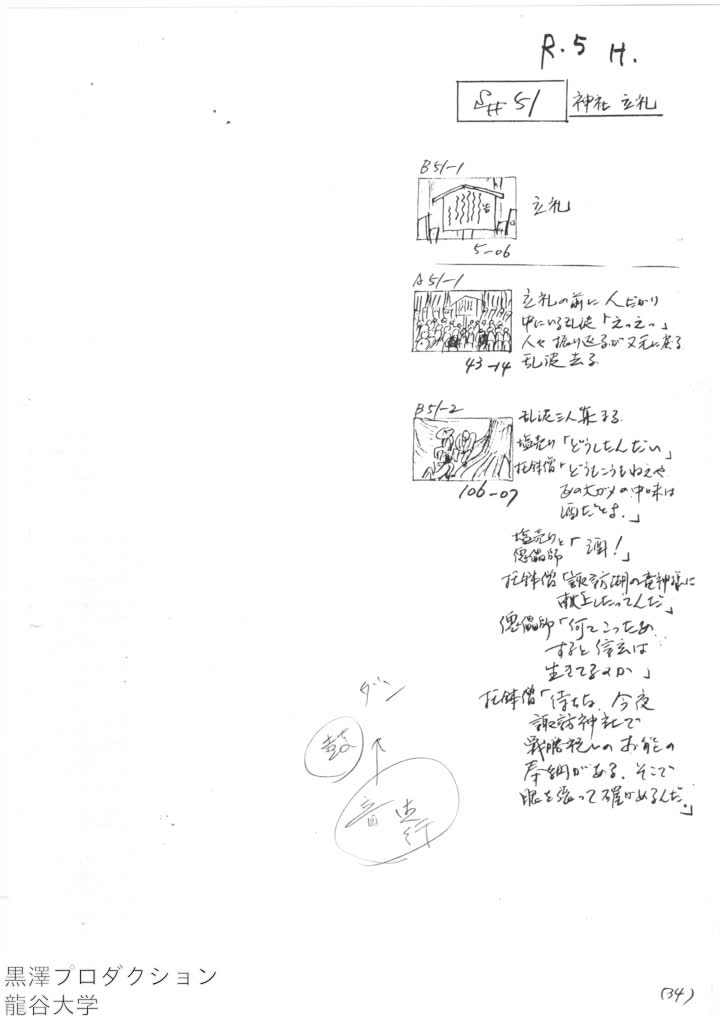 R.5 H.
S# 51 神社 立札
B51-1
立札
5-06
A51-1
立札の前に人だかり
中にいる乱波「えっえっ」
人々振り返るが又元に戻る
乱波去る
43-14
B51-2
乱波三人集まる
塩売り「どうしたんだい」
托鉢僧「どうもこうもねえや
あの大がめの中味は
酒だとよ。」
106-07
塩売りと
傀儡師「酒!」
托鉢僧「諏訪湖の竜神様に
献上したってんだ」
傀儡師「何てこったあ
すると信玄は
生きてるのか」
托鉢僧「待ちな、今夜
諏訪神社で
戦勝祝いのお能の
奉納がある、そこで
眼を張って確かめるんだ。」
ダン
鼓
音 先行
黒澤プロダクション
龍谷大学
(34)